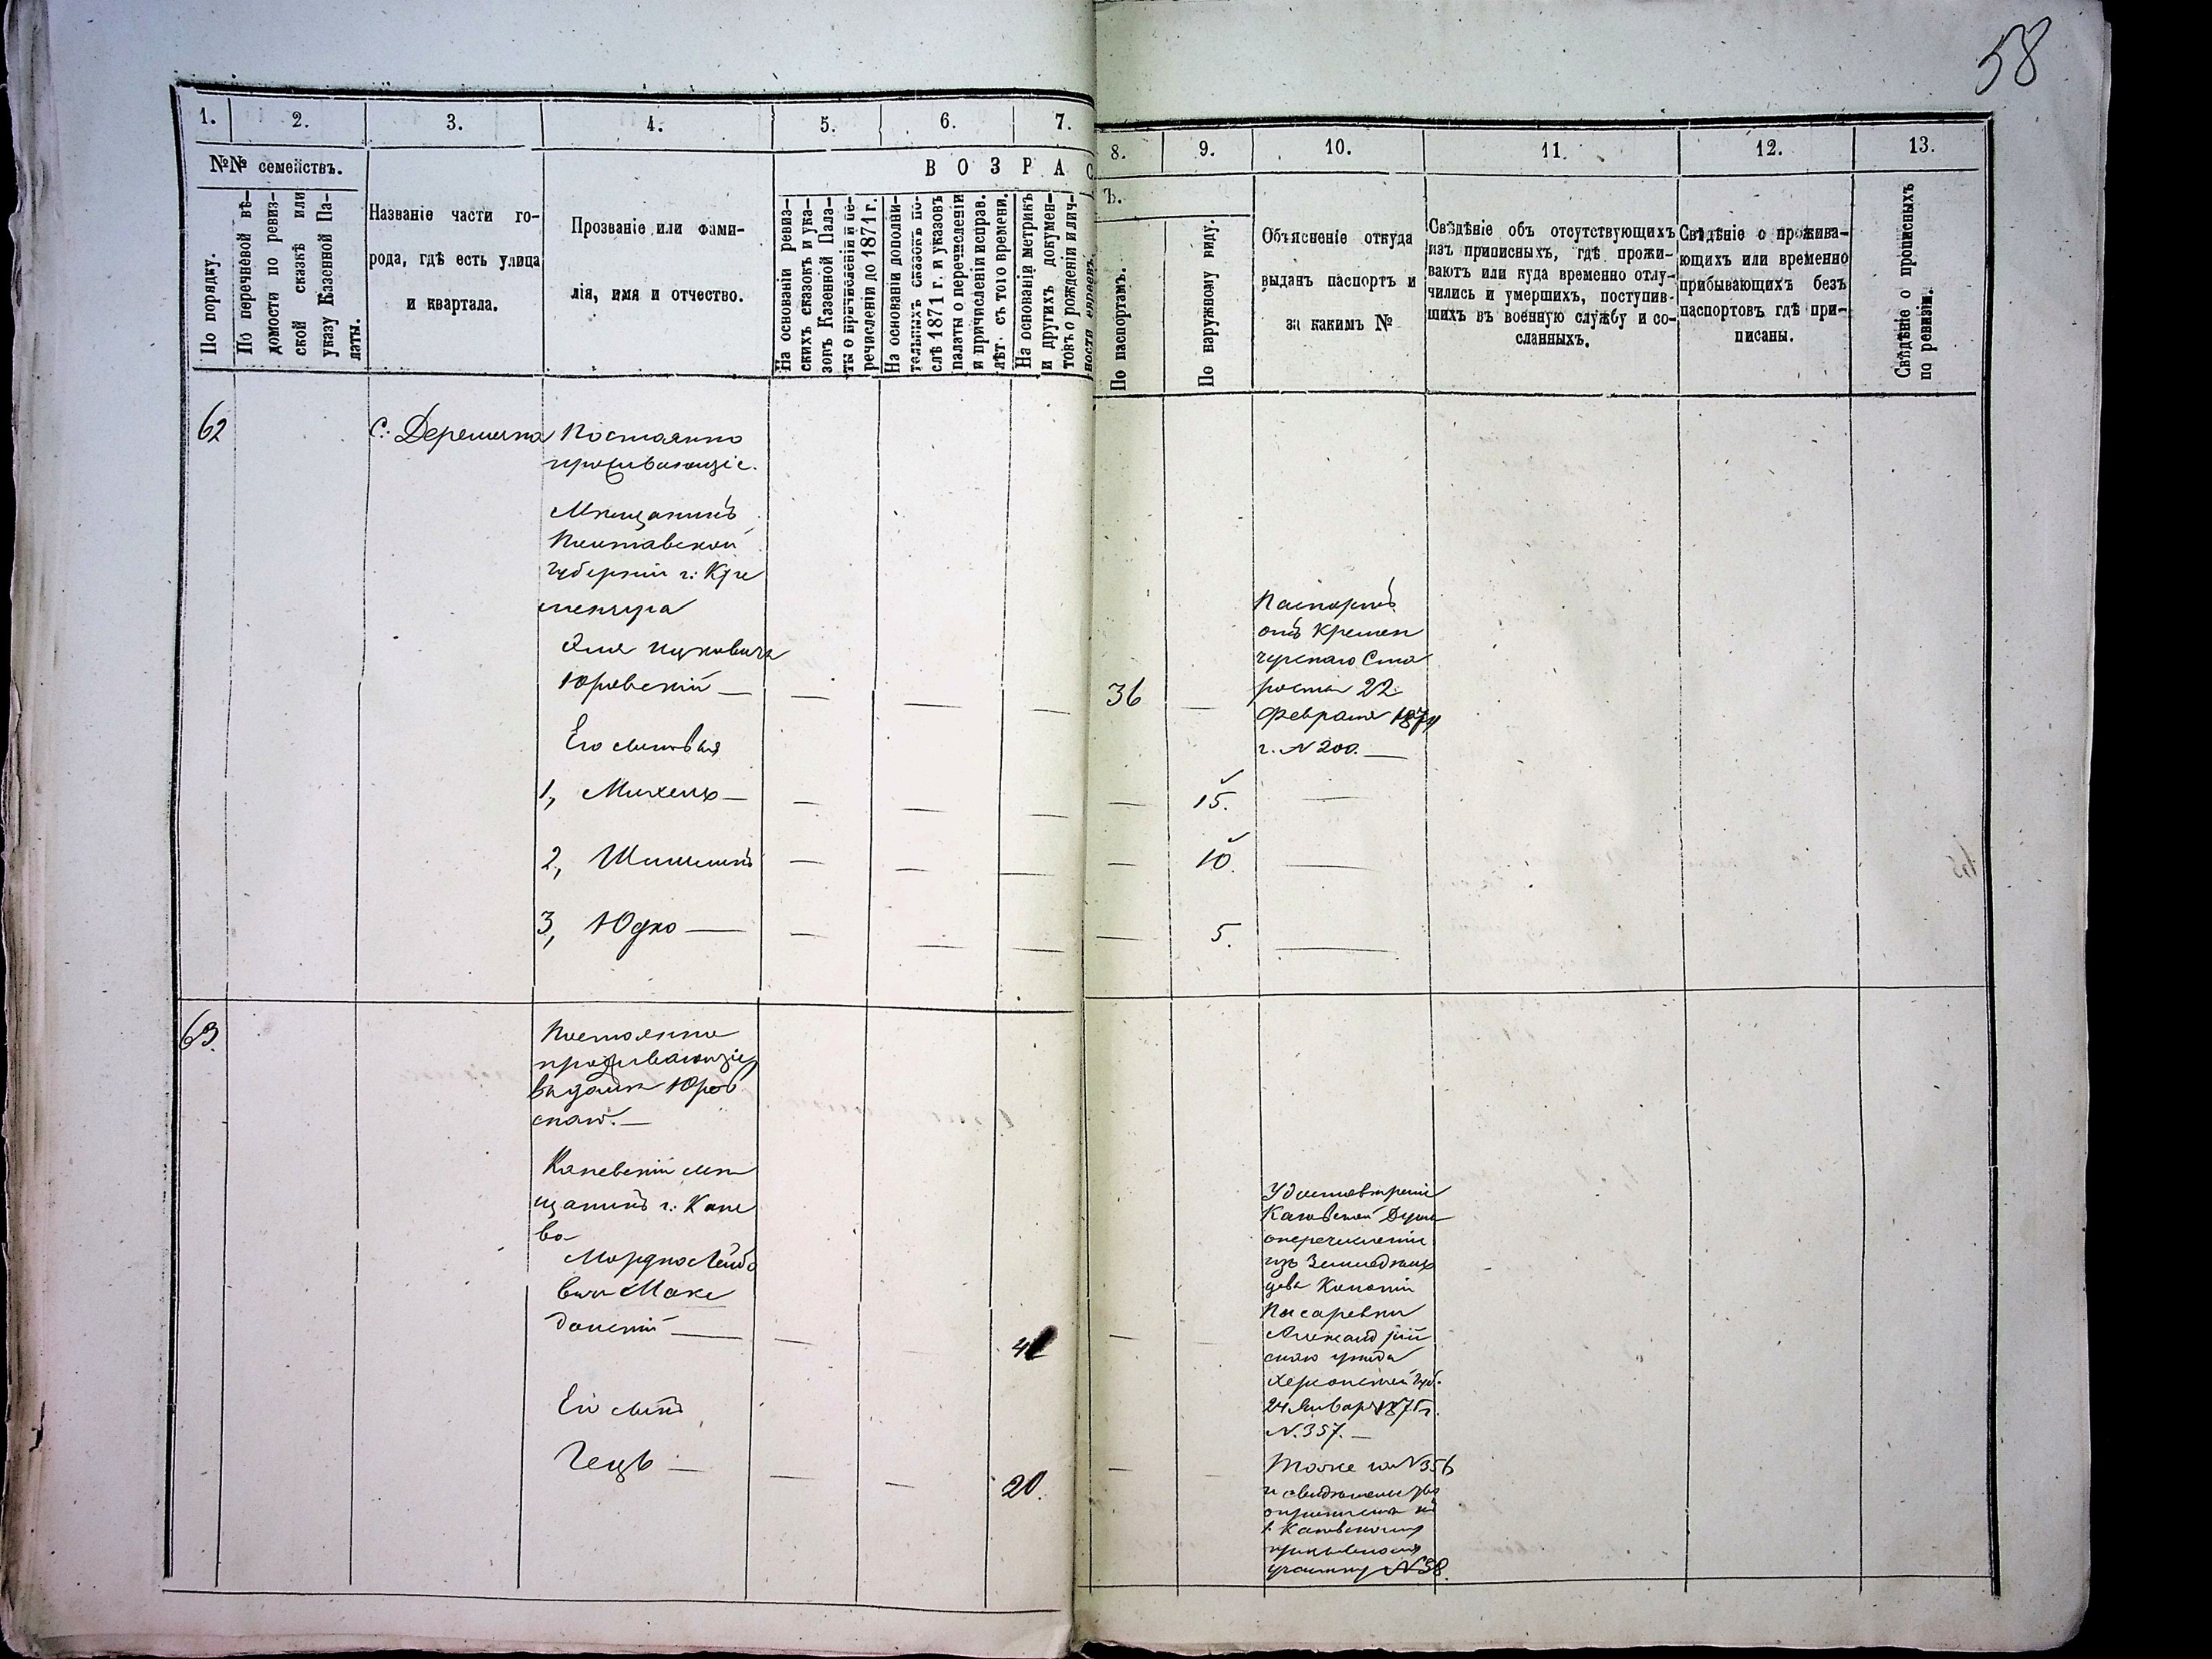 58
1.
2.
3.
4.
5.
6.
7.
8.
9.
10.
11.
12.
13.
№№ семействъ.
По порядку.
По перечневой вѣ-
домости по ревиз-
ской сказкѣ или
указу Казенной Па-
латы.
Названіе части го-
рода, гдѣ есть улица
и квартала.
Прозваніе или фами-
лія, имя и отчество.
ВОЗРАС
Ъ.
На основаніи ревиз-
скихъ сказокъ и ука-
зовъ Казенной Пала-
ты о причисленіи и пе-
речисленіи до 1871 г.
На основаніи дополни-
тельныхъ сказокъ по-
слѣ 1871 г. и указовъ
палаты о перечисленіи
и причисленіи исправ.
лѣт. съ того времени.
На основаніи метрикъ
и другихъ докумен-
товъ о рожденіи и лич-
ности евреевъ.
По паспортамъ.
По наружному виду.
Объясненіе откуда
выданъ паспортъ и
за какимъ №
Свѣдѣніе объ отсутствующихъ
изъ приписныхъ, гдѣ прожи-
ваютъ или куда временно отлу-
чились и умершихъ, поступив-
шихъ въ военную службу и со-
сланныхъ.
Свѣдѣніе о прожива-
ющихъ или временно
прибывающихъ безъ
паспортовъ гдѣ при-
писаны.
Свѣдѣніе о прописныхъ
по ревизіи.
62
С: Деренковка
Постоянно
проживающіе.
Мѣщанинъ
Полтавской
Губерніи г: Кре
менчуга
Эля Ицковичъ
Юровскій —
36
Паспортъ
отъ Кремен
чугскаго Ста
росты 22
Февраля 1874
г. N 200. —
Его сыновья
1, Михель —
15.
2, Шлиома
10.
3, Юдко —
5.
63.
Постоянно
проживающіе
въ домѣ Юров
скаго. —
Каневскій мѣ
щанинъ г: Кане
ва
Мордко Лейбо
вичъ Маке
донскій —
Удостовѣреніе
Каневской Думы
о перечисленіи
изъ Земледѣль
цевъ Колоніи
Писаревки
Александрій
скаго уѣзда
Херсонской Губ.
24 Января 1875 г.
N. 357. —
Его сынъ
Герцъ —
20.
Тоже за N 356
и свидѣтельство
о припискѣ къ
1 Каневскому
призывному
участку N 38.